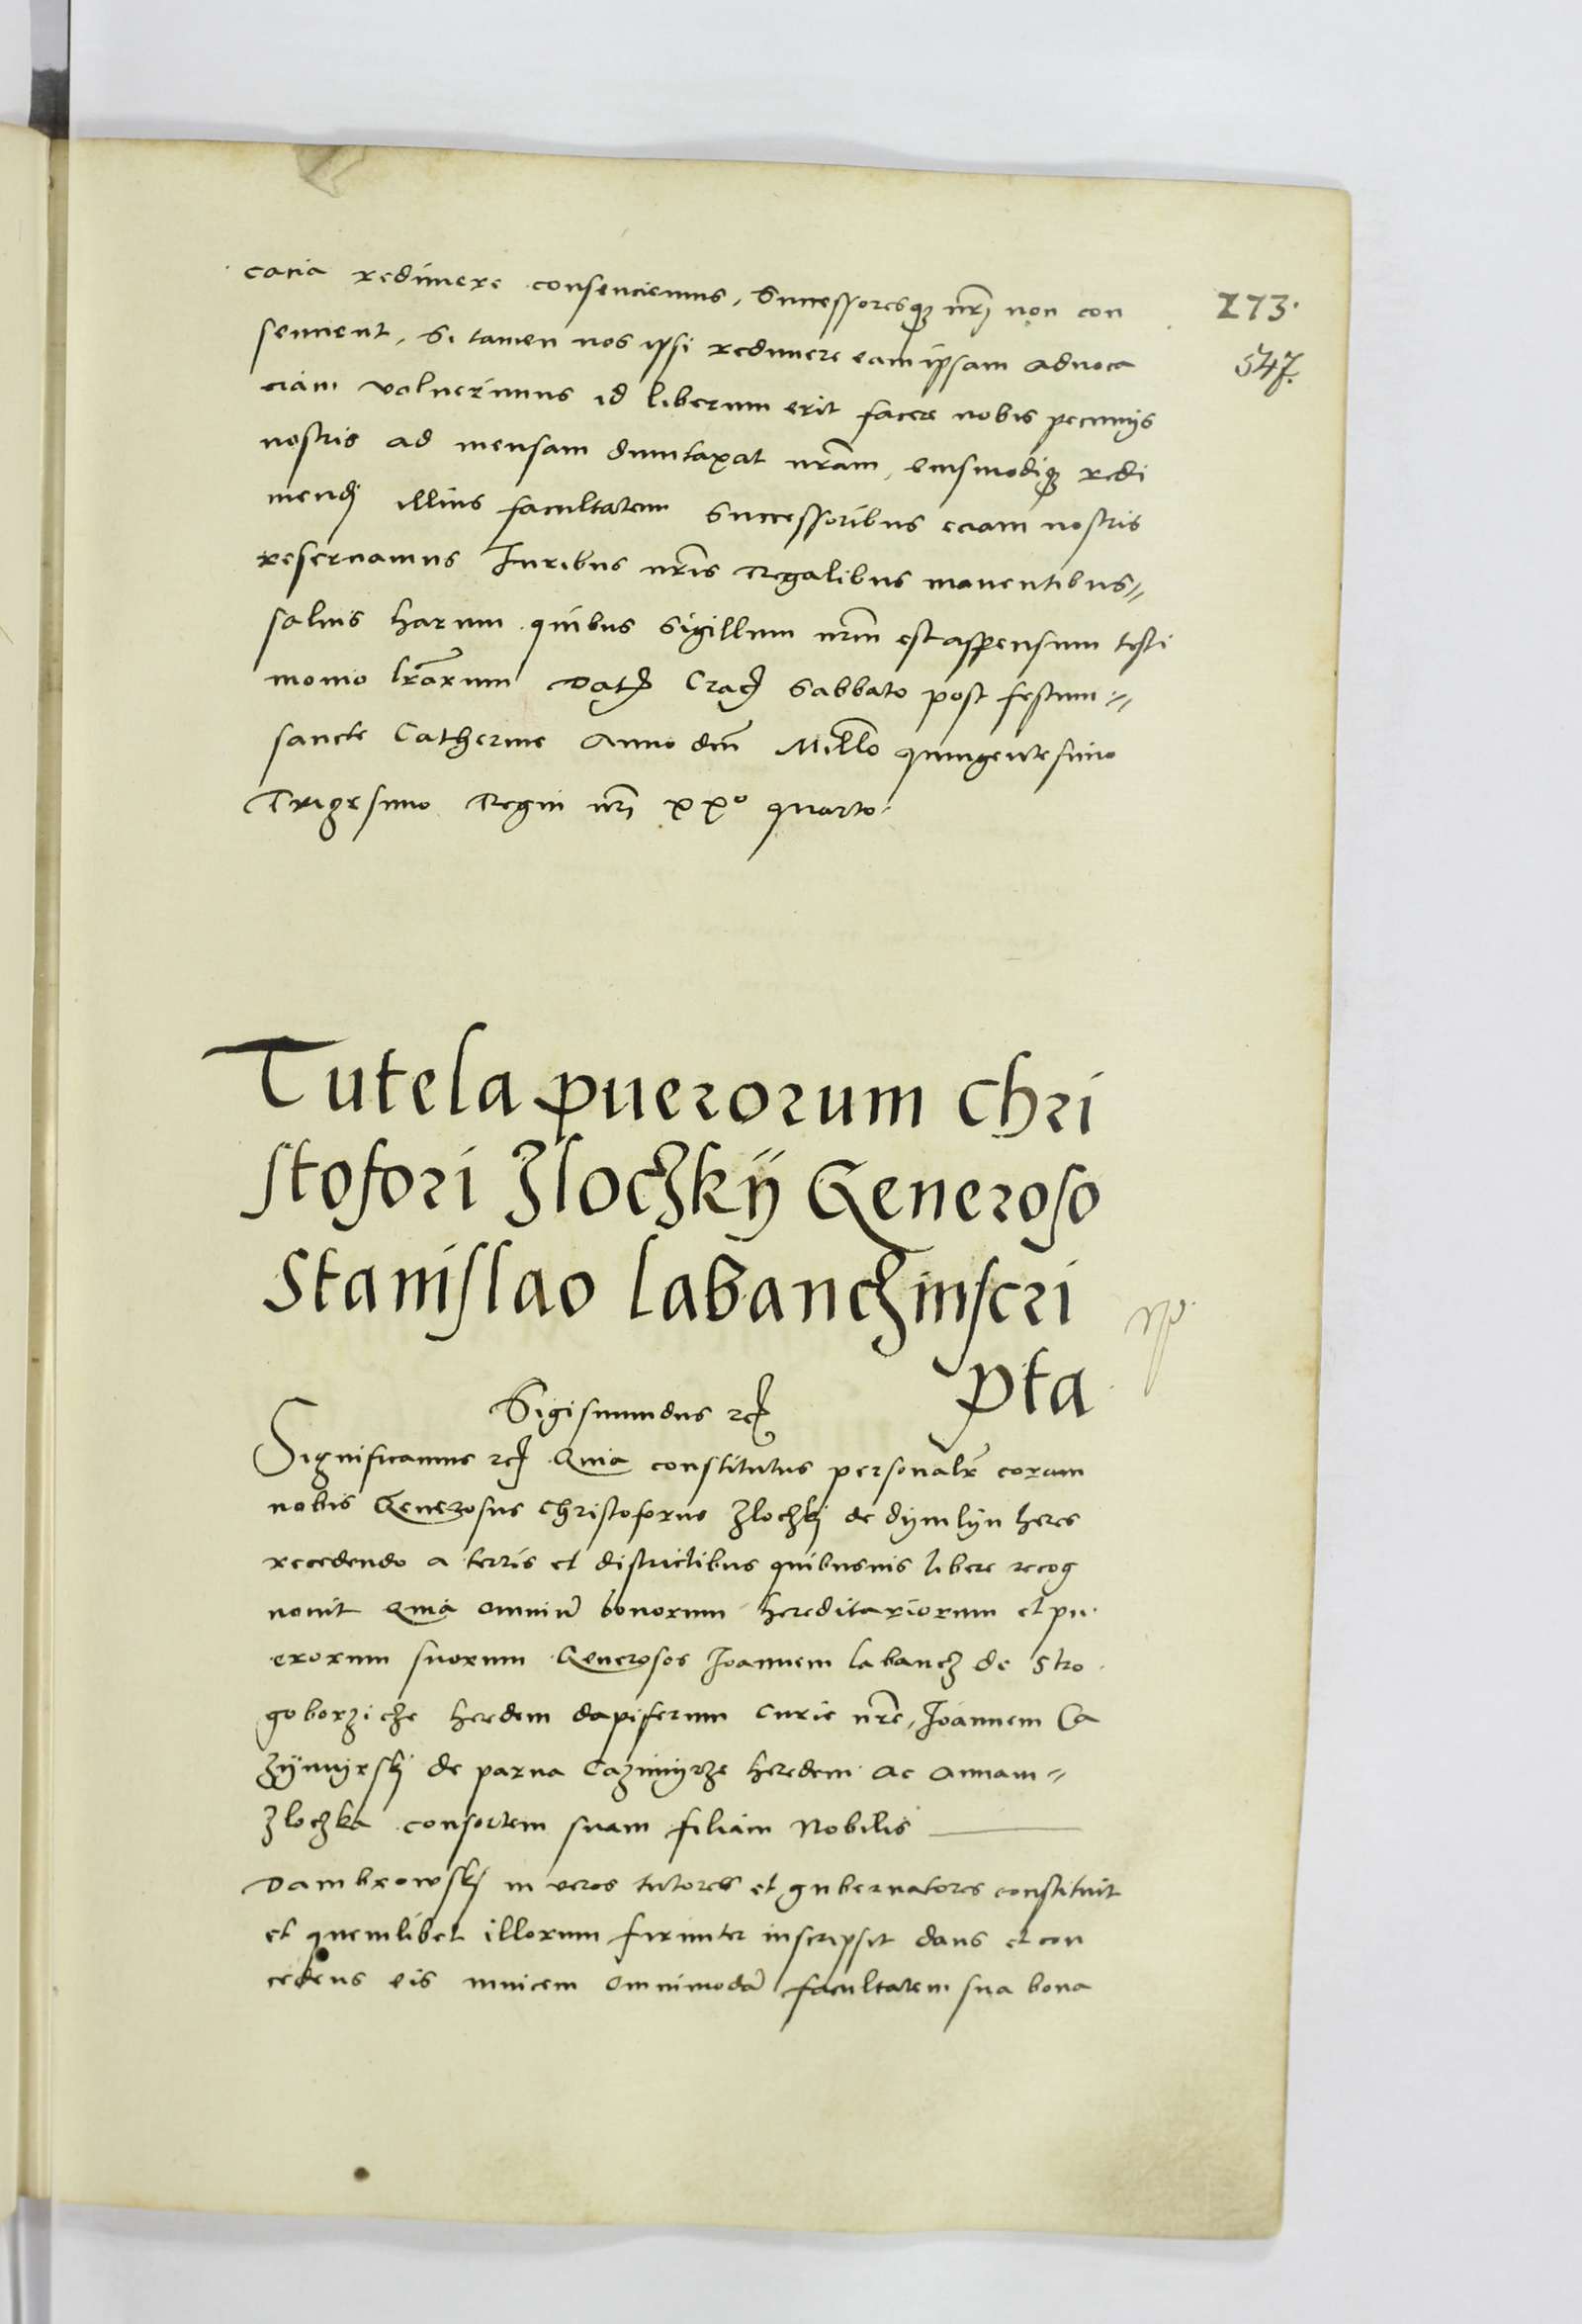 cacia redimere consenciemus, Successoresq3 nr̃i non con
273.
sencient, Si tamen nos ipsi redimere eam ipsam aduoca
547.
ciam voluerimus id liberum erit facere nobis pecunijs
nostris ad mensam dumtaxat nr̃am, eiusmodiq3 redi
mendj illius facultatem Successoribus eciam nostris
reseruamus Juribus nr̃is Regalibus manentibus//
saluis harum quibus Sigillum nr̃m est appensum testi
monio lr̃arum Dat Crac Sabbato post festum //
sancte Catherine Anno dnĩ Millo quingentesimo
Trigesimo Regni nr̃i xxº quarto.
Tutela puerorum Chri
stofori Zloczkÿ Generoso
Stanislao Labancz inscri
pta
Sigismundus rc
Significamus rc Quia constitutus personalr̃ coram
nobis Generosus Christoforus Zloczkj de dÿmlÿn heres
recedendo a terris et districtibus quibusuis libere recog
nouit Quia omniũ bonorum hereditariorum et pu
erorum suorum Generosos Joannem Labancz de Stro
goborziche heredem dapiferum Curie nr̃e, Joannem Ca
zÿmyrskj de parua Cazimÿrze heredem ac Annam //
Zloczka consortem suam filiam Nobilis
Dambrowskj in veros tutores et gubernatores constituit
et quemlibet illorum firmiter inscripsit dans et con
cedens eis inuicem omnimodã facultatem sua bona